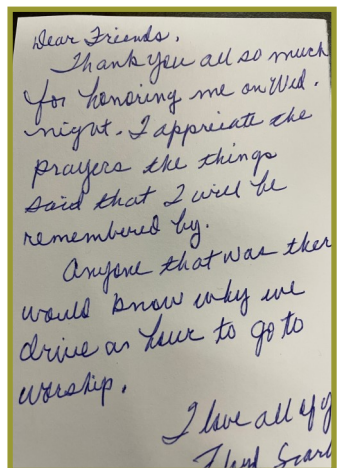 Dear Friends,
Thank you all so much
for honoring me on Wed.
night. I appreciate the
prayers the things
said that I will be
remembered by.
Anyone that was ther
would know why we
drive an hour to go to
worship.
I love all of y